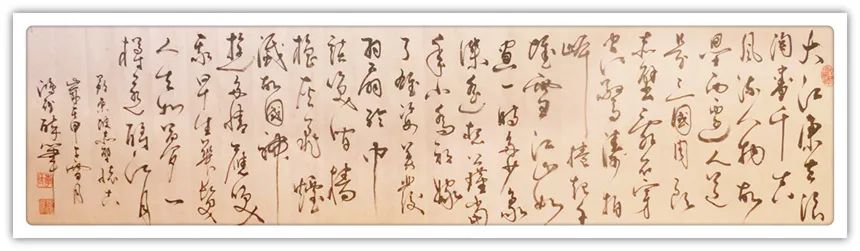 大江東去浪
淘盡千古
風流人物故
壘西邊人道
是三國周郎
赤壁亂石穿
空驚濤拍
岸捲起千
堆雪江山如
畫一時多少豪
傑遙想公瑾當
年小喬初嫁
了雄姿英發
羽扇綸巾
談笑間檣
櫓灰飛煙
滅故國神
遊多情應笑
我早生華髮
人生如夢一
樽還酹江月
赤壁懷古